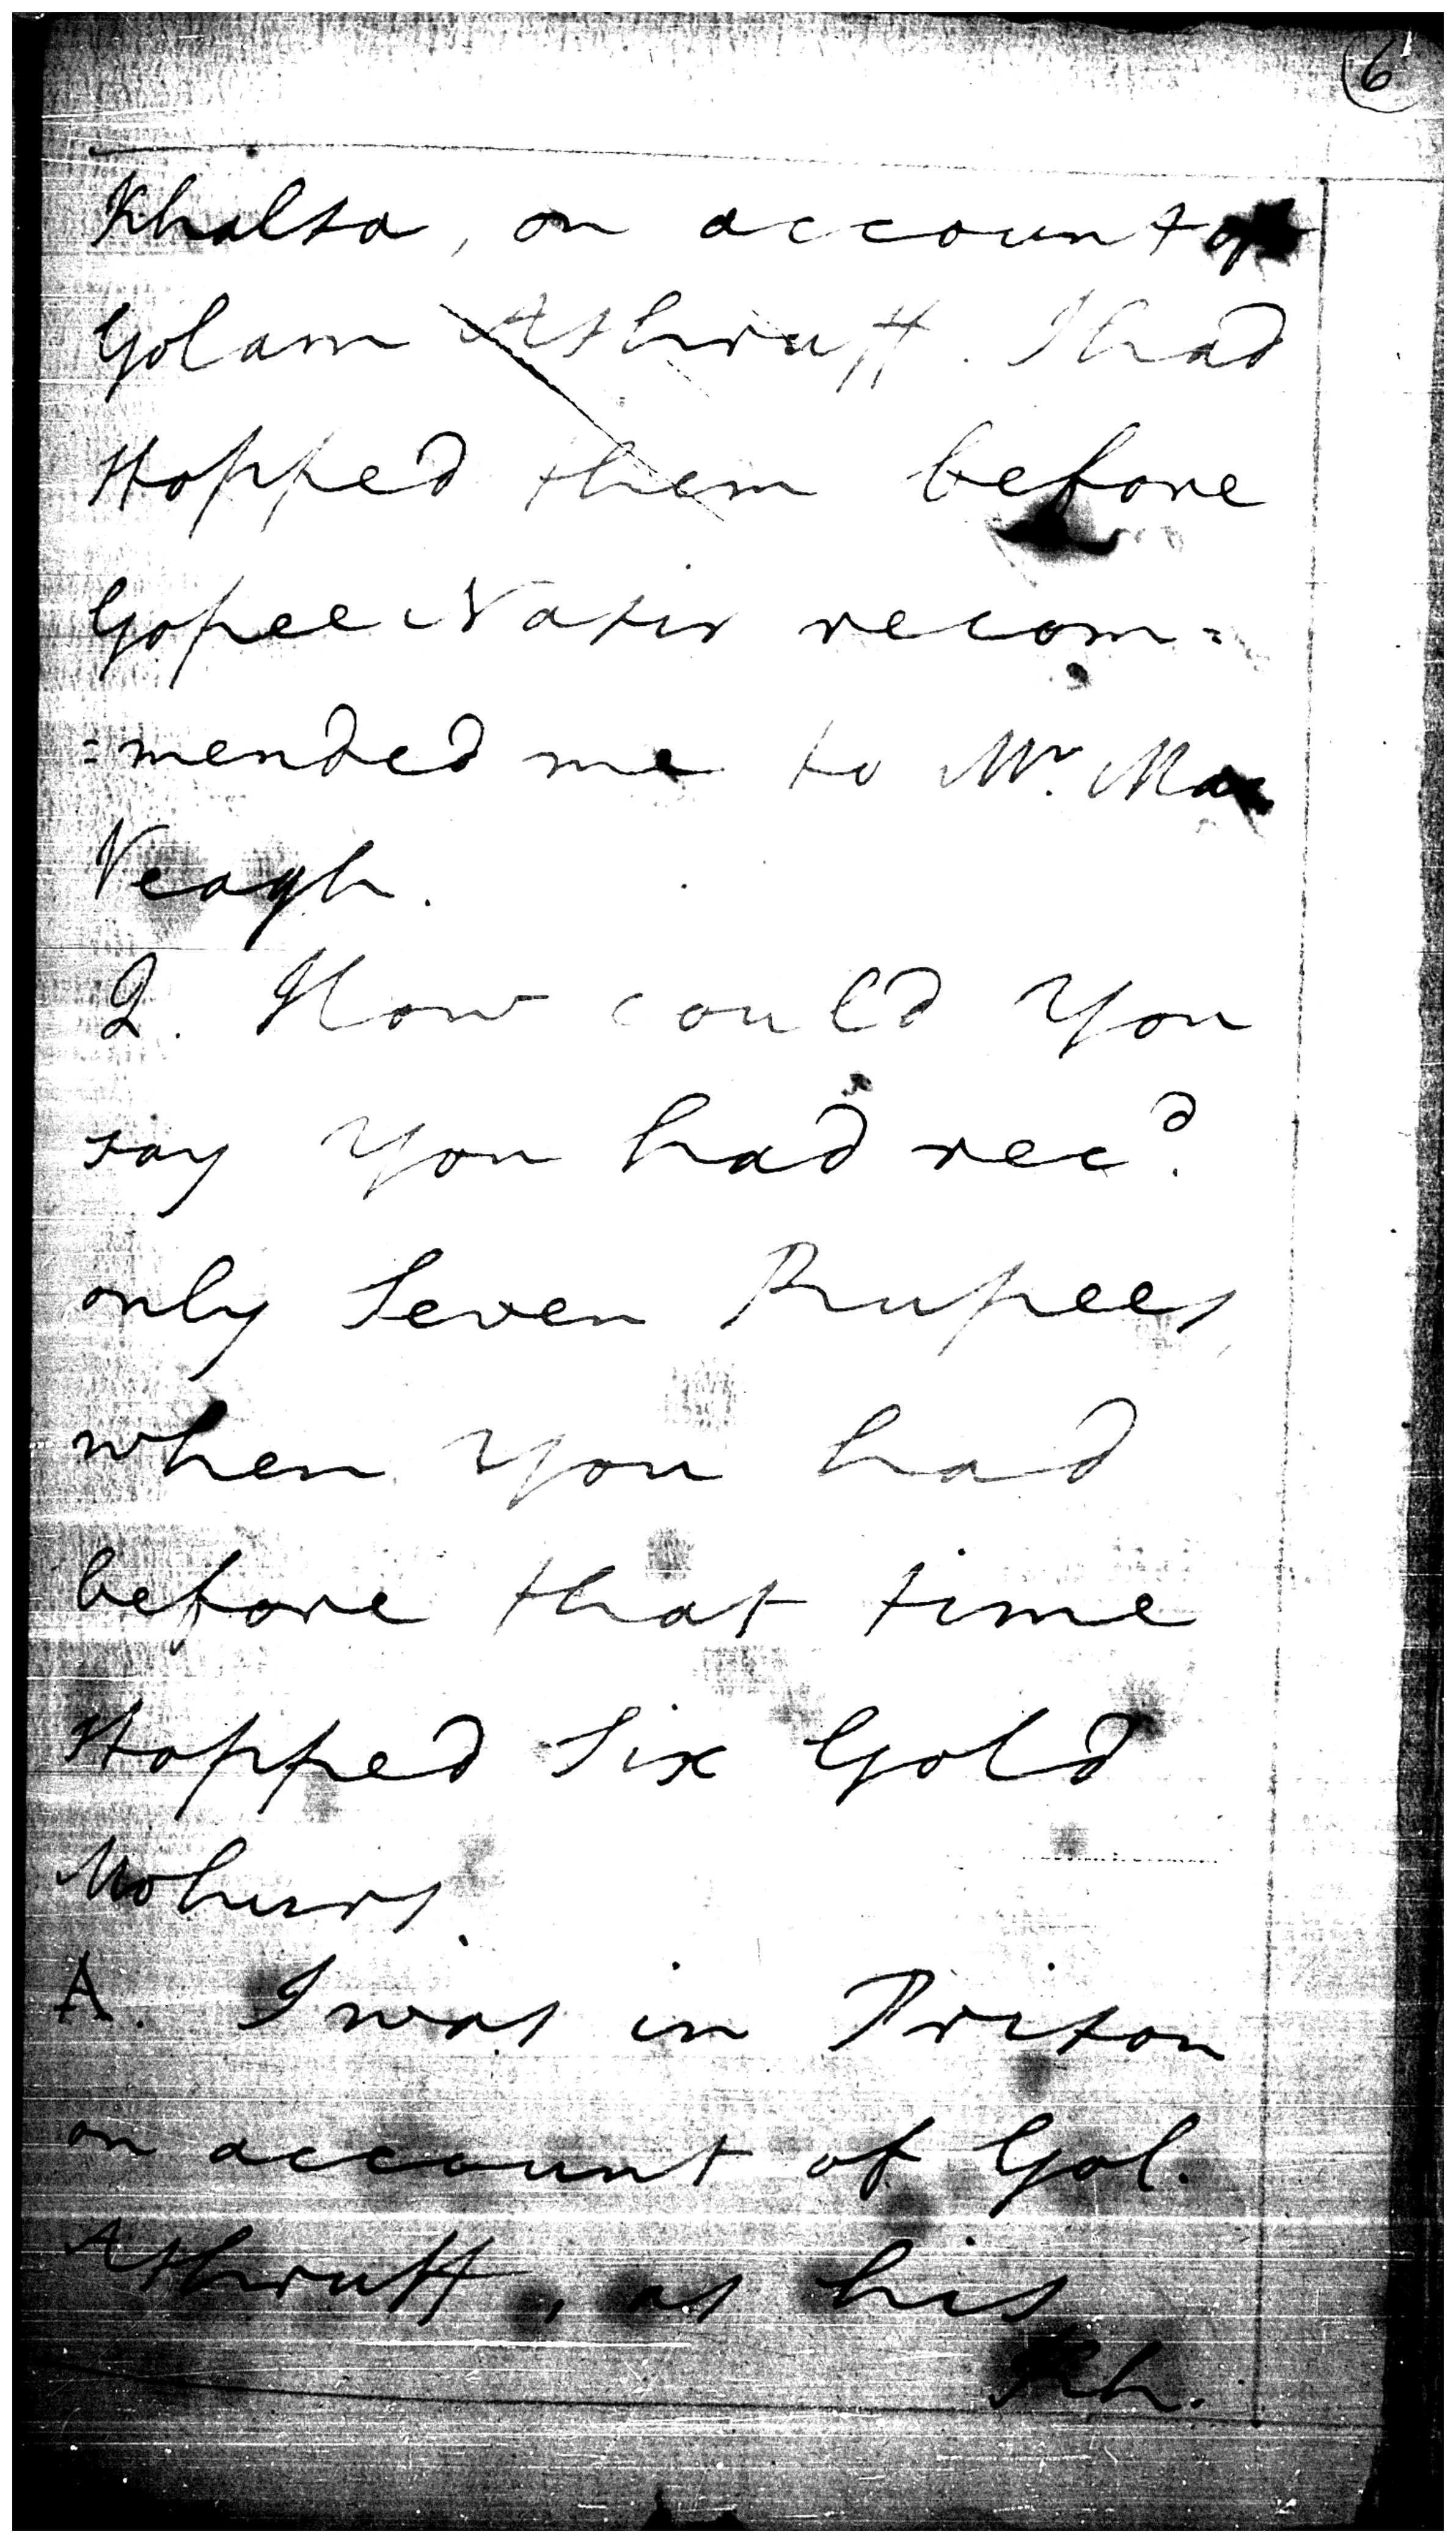 6
Khalsa, on account of
Golam Ashruff. I had
stopped them before
Gopee Nasir recom=
=mended me to Mr. Mac
Veagh.
Q. How could you
say you had rec.d
only Seven Rupees,
when you had
before that time
stopped Six Gold
Mohurs.
A. I was in Prison
on account of Gol.
Ashruff, as his